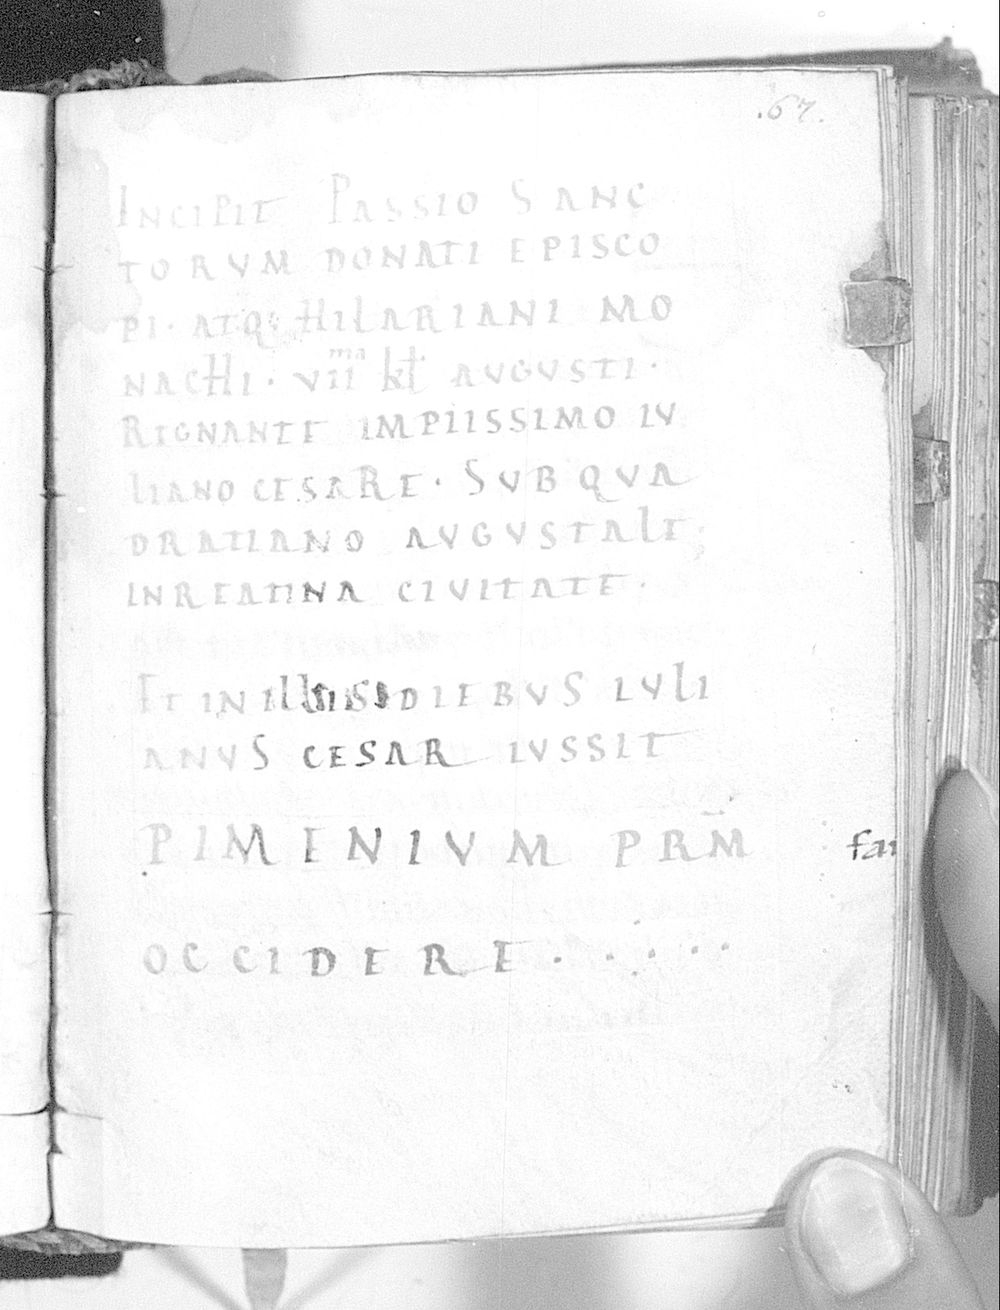 .67.
INCIPIT PASSIO SANC
TORVM DONATI EPISCO
PI· ATQ; HILARIANI MO
NACHI · VII ma kł AUGUSTI ·
RIGNANTE IMPIISSIMO IV
LIANO CESARE · SVB QVA
DRATIANO AVGVSTALE;
INREATINA CIVITATE ·
ET IN ILLISDIEBVS IVLI
ANVS CESAR IVSSIT
PIMENIVM PRM̄
OCCIDERE · · · · ·